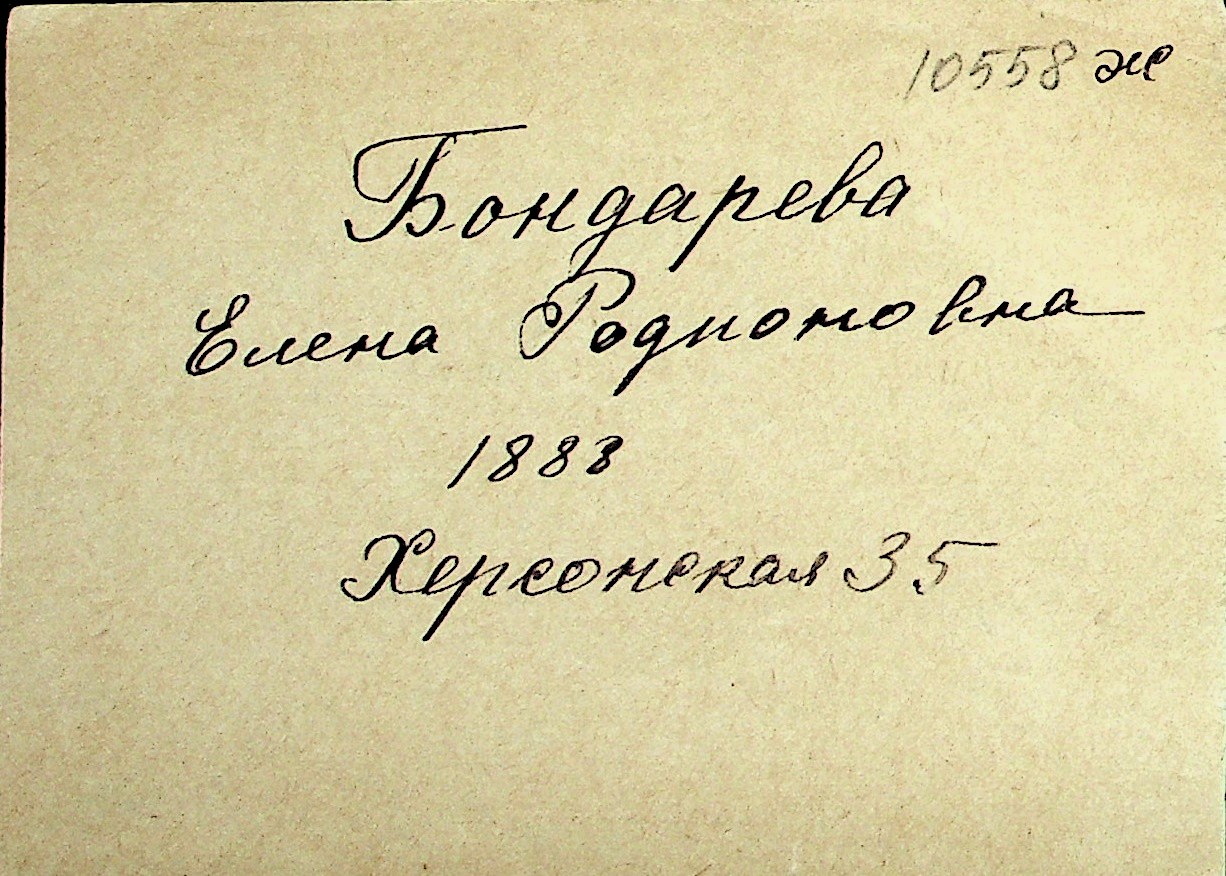 10558 ж
Бондарева
Елена Родионовна
1883
Херсонская 35